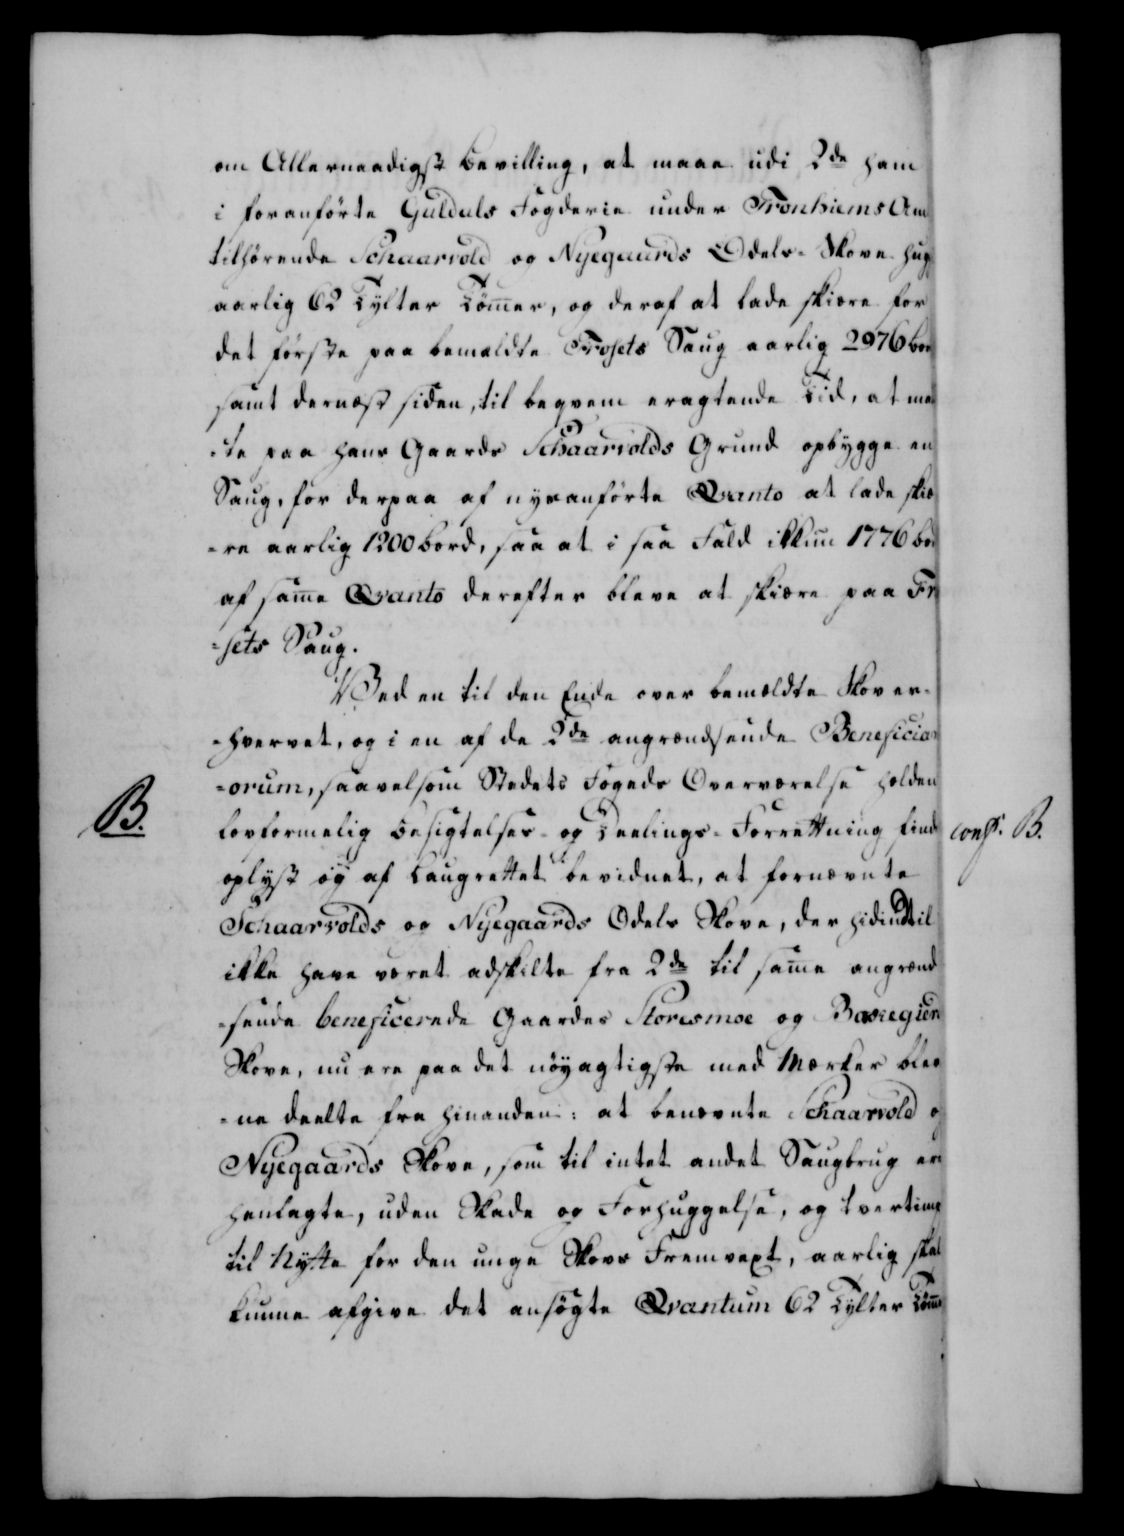 om Allernaadigst Bevilling, at maae udi 2de ham
i foranførte Guldals Fogderie under TronhiemsAm
tilhørende Schaarvold og Nyegaards Odels-Skove hug
aarlig 62 Tylter Tømer, og deraf at lade skiære for
det første paa bemældte Frosets Saug aarlig 2976 bor
samt dernæst siden, til beqvem eragtende Tid, at maa
-te paa hans Gaards Schaarvolds Grund opbygge en
Saug, for derpaa af nysanførte Qvanto at lade skiæ
-re aarlig 1200 bord, saa at i saa Fald ikkun 1776 bor
af same Qvanto derefter bleve at skiære paa Fr
-sets Saug.
Ved en til den Ende over bemældte Skov er-
-hvervet, og i en af de 2de angrændsende Beneficia
-orum, saavelsom Stedets Fogeds Overværelse holden
B.
lovformelig Besigtelses- og Deelings-Forrettning find
conf. B.
oplyst og af Laugrettet bevidnet, at fornævnte
Schaarvolds og Nyegaards Odels Skove, der hidindtil
ikke have været adskilte fra 2de til same angrænd
-sende beneficerede Gaardes Storesmoe og
Skove, nu ere paa det nøyagtigste med Mærker blev
-ne deelte fra hinanden: at benævnte Schaarvold o
Nyegaards Skove, som til intet andet Saugbrug er
henlagte, uden Skade og Forhuggelse, og tvertimo
til Nytte for den unge Skovs Fremvext, aarlig skal
kunne afgive det ansøgte Qvantum 62 Tylter Tøme